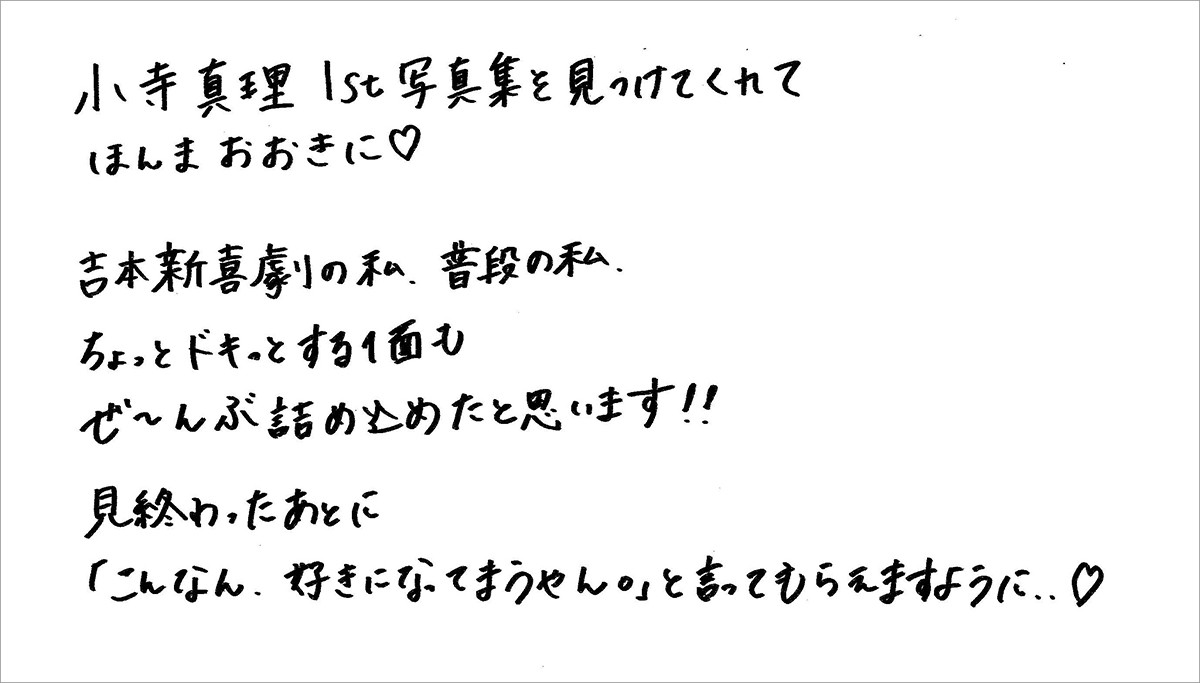 小寺真理 1st写真集を見つけてくれて
ほんま おおきに♡
吉本新喜劇の私、普段の私、
ちょっとドキっとする1面も
ぜ〜んぶ詰め込めたと思います!!
見終わったあとに
「こんなん、好きになってまうやん。」と言ってもらえますように..♡